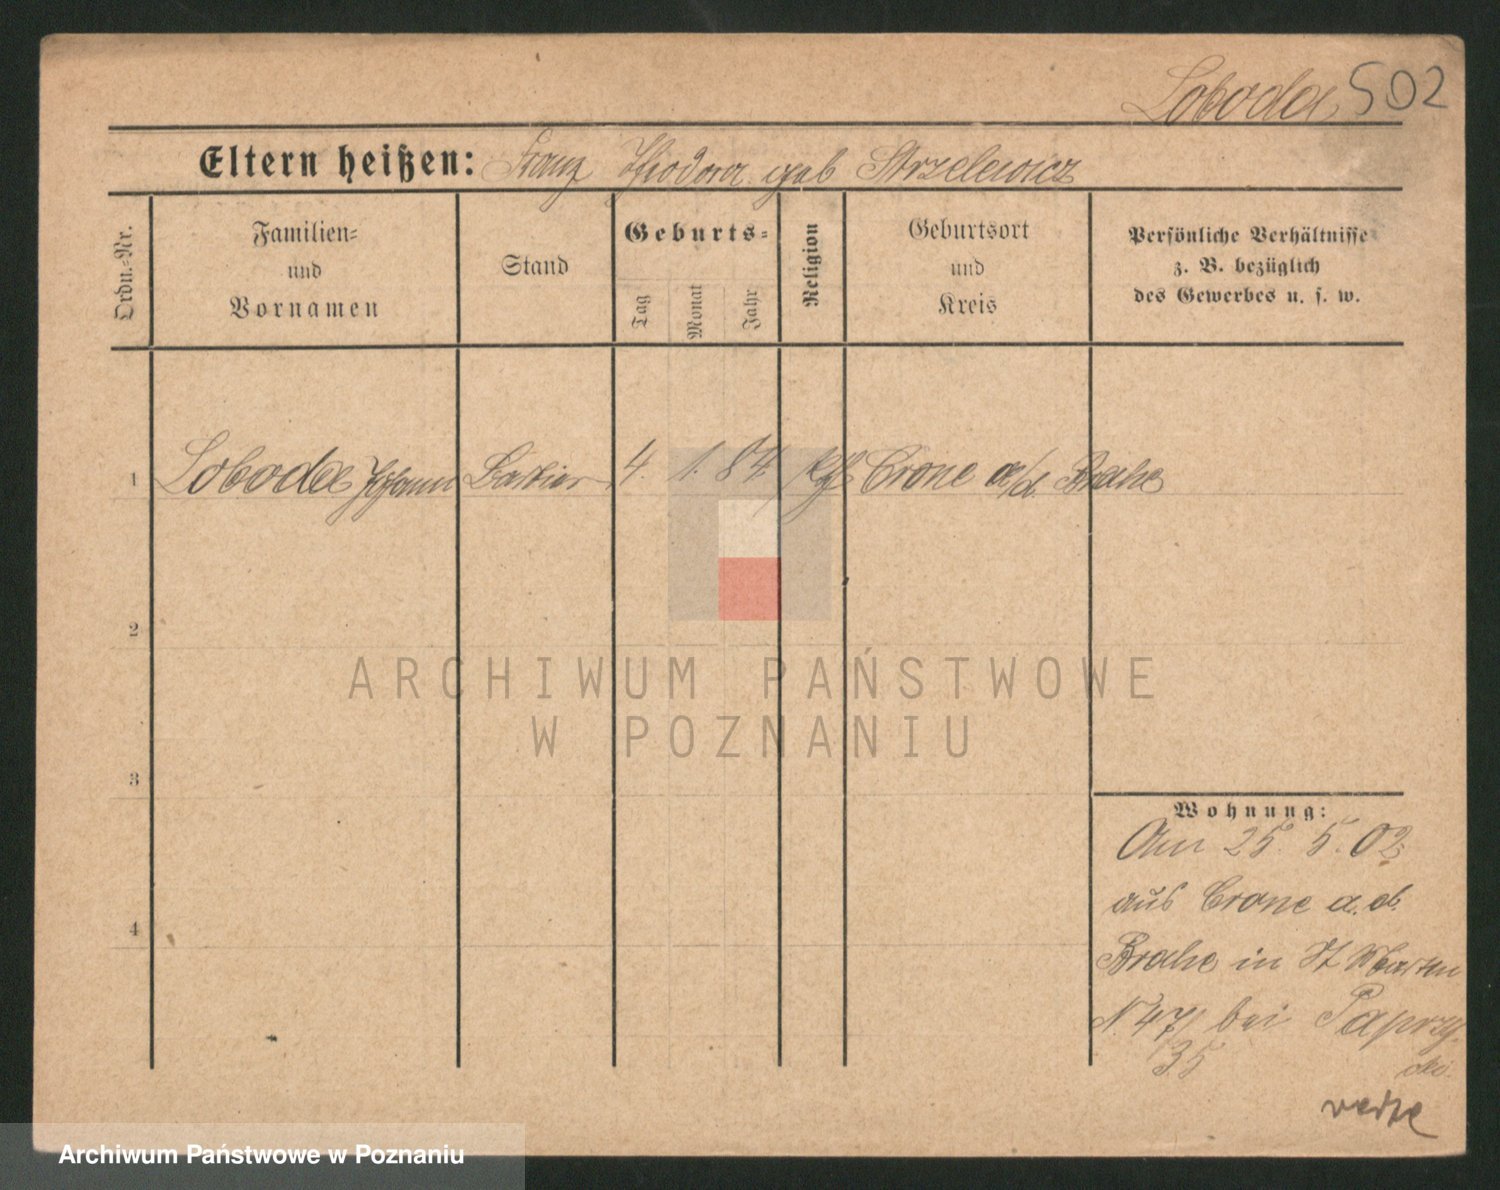 Loboda 502
Eltern heißen: Franz Theodora geb Strzelewicz
Ordn.-Nr.
Familien-
und
Vornamen
Stand
Geburts-
Tag
Monat
Jahr
Religion
Geburtsort
und
Kreis
Persönliche Verhältnisse
z. B. bezüglich
des Gewerbes u. s. w.
1 Loboda Johann Barbier 4. 1. 84 Crone a/d. Brahe
2
3
4
Wohnung:
Am 25. 5. 02
aus Crone a. d.
Brahe in St Martin
N. 47/ bei
35
ARCHIWUM PAŃSTWOWE
W POZNANIU
Archiwum Państwowe w Poznaniu